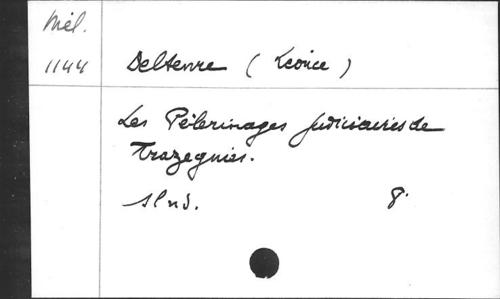 Mél.
1144
Deltenre (Léonce)
Les Pélerinages Judiciaires de
Trazegnies.
s l n d.
8°